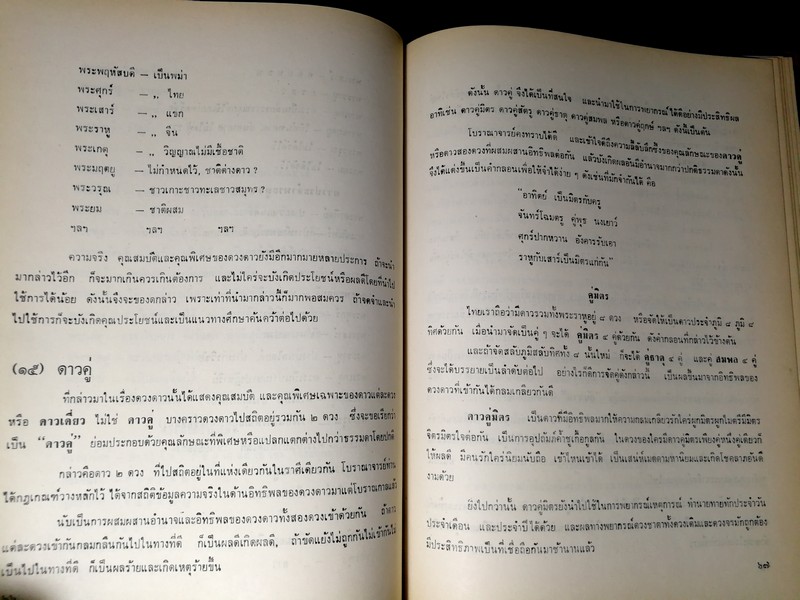 พระพฤหัสบดี — เป็นพม่า
พระศุกร์ — ,, ไทย
พระเสาร์ — ,, แขก
พระราหู — ,, จีน
พระเกตุ — ,, วิญญาณไม่มีเชื้อชาติ
พระมฤตยู — ไม่กำหนดไว้, ชาติต่างดาว ?
พระวรุณ — ชาวเกาะชาวทะเลชาวสมุทร ?
พระยม — ชาติผสม
ฯลฯ ฯลฯ ฯลฯ
ความจริง คุณสมบัติและคุณพิเศษของดวงดาวยังมีอีกมากมายหลายประการ ถ้าจะนำ
มากล่าวไว้อีก ก็จะมากเกินควรเกินต้องการ และไม่ใคร่จะบังเกิดประโยชน์หรือผลดีโดยที่นำไป
ใช้การได้น้อย ดังนั้นจึงจะของดกล่าว เพราะเท่าที่นำมากล่าวนี้ก็มากพอสมควร ถ้าจดจำและนำ
ไปใช้การก็จะบังเกิดคุณประโยชน์และเป็นแนวทางศึกษาค้นคว้าต่อไปด้วย
(๑๕) ดาวคู่
ที่กล่าวมาในเรื่องดวงดาวนั้นได้แสดงคุณสมบัติ และคุณพิเศษเฉพาะของดาวแต่ละดวง
หรือ ดาวเดี่ยว ไม่ใช่ ดาวคู่ บางคราวดวงดาวไปสถิตอยู่รวมกัน ๒ ดวง ซึ่งจะขอเรียกว่า
เป็น “ดาวคู่” ย่อมประกอบด้วยคุณลักษณะที่พิเศษหรือแปลกแตกต่างไปกว่าธรรมดาโดยปกติ
กล่าวคือดาว ๒ ดวง ที่ไปสถิตอยู่ในที่แห่งเดียวกันในราศีเดียวกัน โบราณาจารย์ท่าน
ได้กฎเกณฑ์วางหลักไว้ ได้จากสถิติข้อมูลความจริงในด้านอิทธิพลของดวงดาวมาแต่โบราณกาลแล้ว
นับเป็นการผสมผสานอำนาจและอิทธิพลของดวงดาวทั้งสองดวงเข้าด้วยกัน ถ้าดาว
แต่ละดวงเข้ากันกลมกลืนกันไปในทางที่ดี ก็เป็นผลดีเกิดผลดี, ถ้าขัดแย้งไม่ถูกกันไม่เข้ากันไม่
เป็นไปในทางที่ดี ก็เป็นผลร้ายและเกิดเหตุร้ายขึ้น
ดังนั้น ดาวคู่ จึงได้เป็นที่สนใจ และนำมาใช้ในการพยากรณ์ได้ดีอย่างมีประสิทธิผล
อาทิเช่น ดาวคู่มิตร ดาวคู่ศัตรู ดาวคู่ธาตุ ดาวคู่สมพล หรือดาวคู่ฤกษ์ ฯลฯ ดังนี้เป็นต้น
โบราณาจารย์คงทราบได้ดี และเข้าใจดีถึงความลี้ลับลึกซึ้งของคุณลักษณะของดาวคู่
หรือดาวสองดวงที่ผสมผสานอิทธิพลต่อกัน แล้วบังเกิดผลอันมีอำนาจมากกว่าปกติธรรมดาดังนั้น
จึงได้แต่งขึ้นเป็นคำกลอนเพื่อให้จำได้ง่าย ๆ ดังเช่นที่มักจำกันได้ คือ
“อาทิตย์ เป็นมิตรกับครู
จันทร์โฉมตรู คู่พุธ นงเยาว์
ศุกร์ปากหวาน อังคารรับเอา
ราหูกับเสาร์เป็นมิตรแก่กัน”
คู่มิตร
ไทยเราถือว่ามีดาวรวมทั้งพระราหูอยู่ ๘ ดวง หรือจัดให้เป็นดาวประจำภูมิ ๘ ภูมิ ๘
ทิศด้วยกัน เมื่อนำมาจัดเป็นคู่ ๆ จะได้ คู่มิตร ๔ คู่ด้วยกัน ดังคำกลอนที่กล่าวไว้ข้างต้น
และถ้าจัดสลับภูมิสลับทิศทั้ง ๘ นั้นใหม่ ก็จะได้ คู่ธาตุ ๔ คู่ และคู่ สมพล ๔ คู่
ซึ่งจะได้บรรยายเป็นลำดับต่อไป อย่างไรก็ดีการจัดคู่ดังกล่าวนี้ เป็นผลขึ้นมาจากอิทธิพลของ
ดวงดาวที่เข้ากันได้กลมเกลียวกันดี
ดาวคู่มิตร เป็นดาวที่มีอิทธิพลมากให้ความกลมเกลียวรักใคร่ผูกมิตรผูกไมตรีมีมิตร
จิตรมิตรใจต่อกัน เป็นการอุปถัมภ์ค้ำชูเกื้อกูลกัน ในดวงของใครมีดาวคู่มิตรเพียงคู่หนึ่งคู่เดียวก็
ให้ผลดี มีคนรักใคร่นิยมนับถือ เข้าไหนเข้าได้ เป็นเสน่ห์เมตตามหานิยมและเกิดโชคลาภอันดี
งามด้วย
ยิ่งไปกว่านั้น ดาวคู่มิตรยังนำไปใช้ในการพยากรณ์เหตุการณ์ ทำนายทายทักประจำวัน
ประจำเดือน และประจำปีได้ด้วย และผลทางพยากรณ์ดวงชาตาทั้งดวงเดิมและดวงจรมักถูกต้อง
มีประสิทธิภาพเป็นที่เชื่อถือกันมาช้านานแล้ว
๖๗